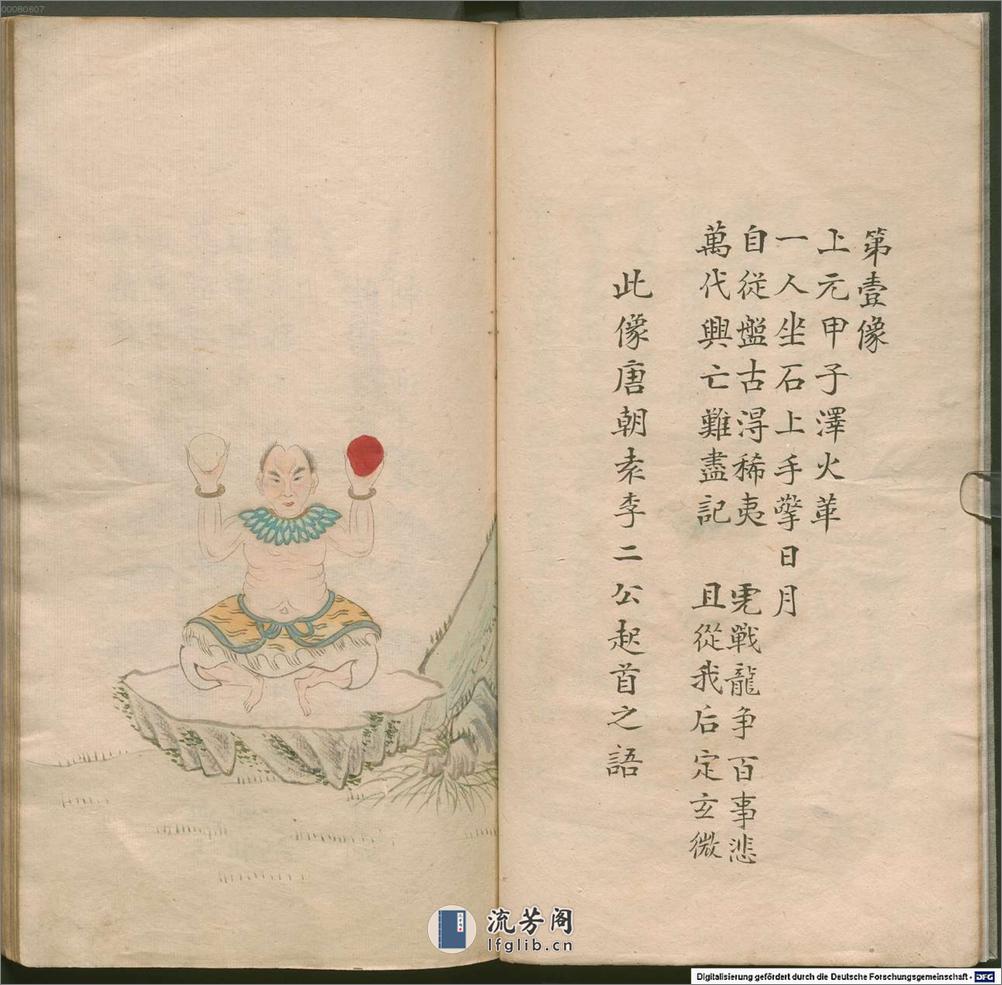 第壹像
上元甲子澤火革
一人坐石上手擎日月
自從盤古淂稀夷 虎戰龍争百事悲
萬代興亡難盡記 且從我后定玄微
此像唐朝袁李二公起首之語
流芳阁
lfglib.cn
Digitalisierung gefördert durch die Deutsche Forschungsgemeinschaft - DFG